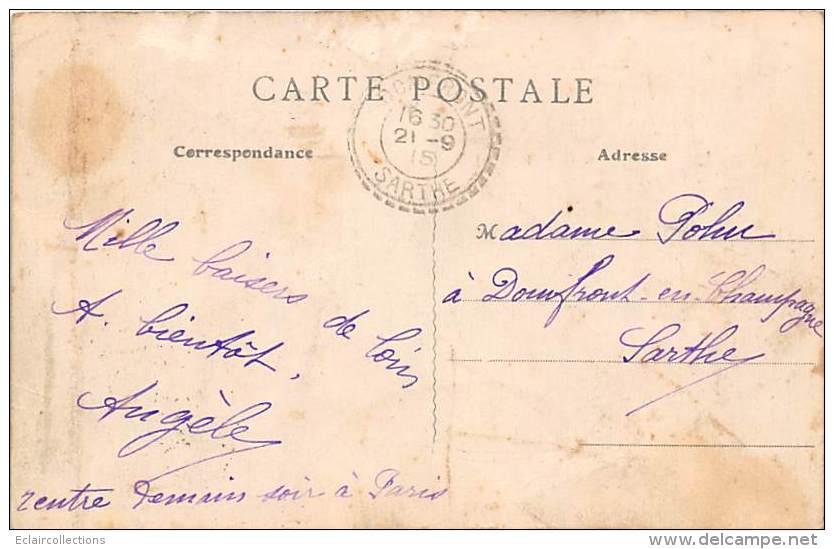 CARTE POSTALE
16 30
21-9
15
SARTHE
Correspondance
Adresse
Mille baisers de loin
A. bientôt,
Angèle
rentre demain soir à Paris
Madame Pohu
à Domfront-en-Champagne
Sarthe
Eclaircollections
www.delcampe.net